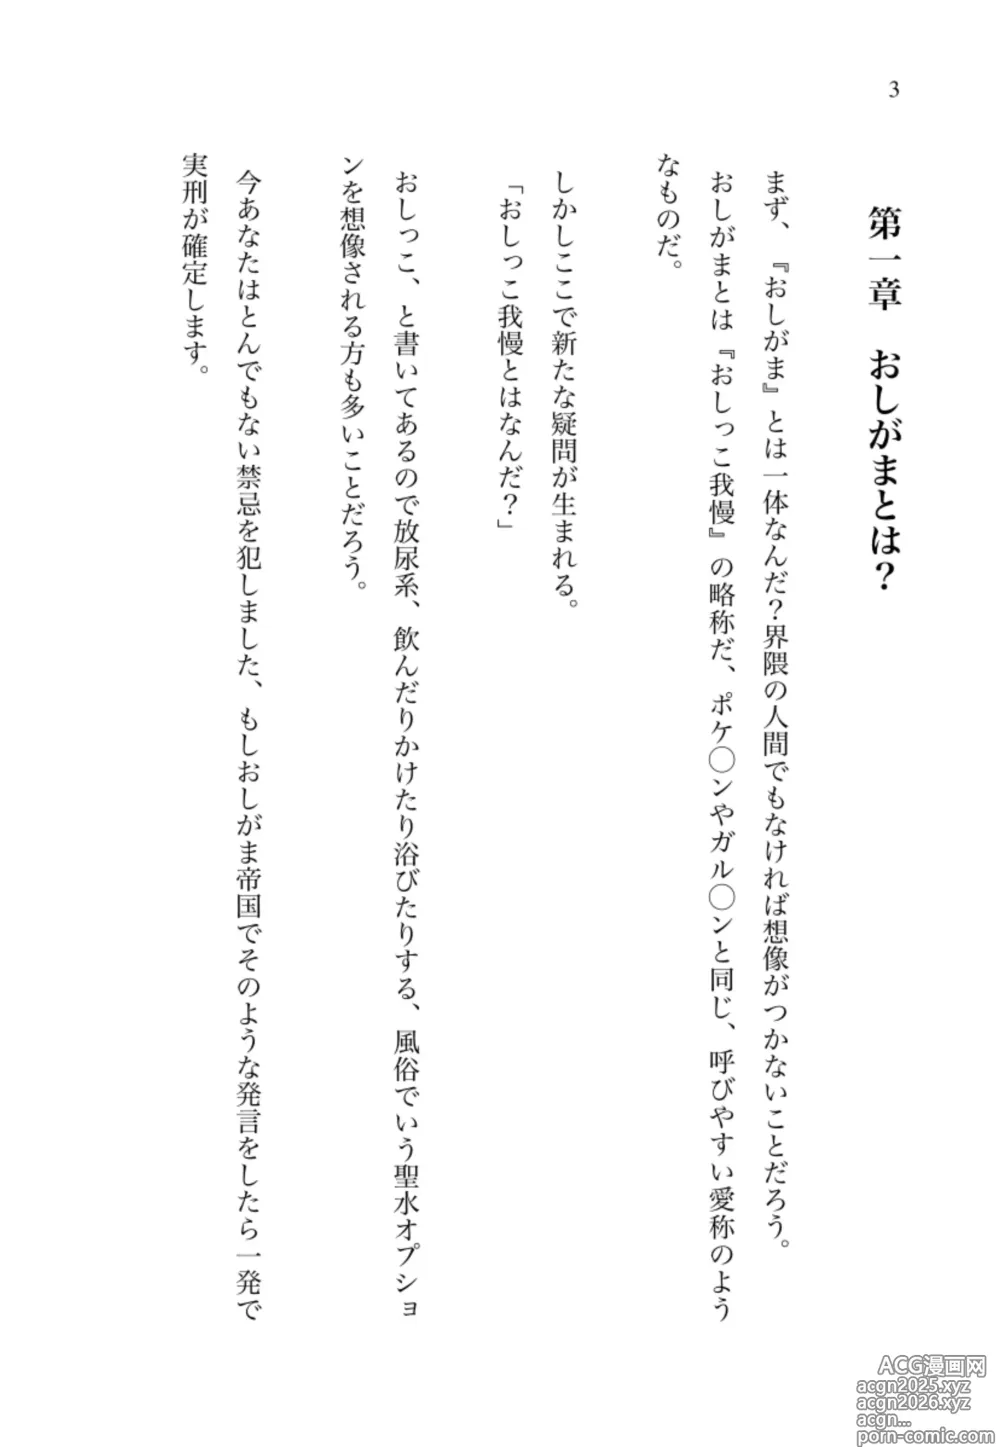 3
第一章　おしがまとは？
まず、『おしがま』とは一体なんだ？界隈の人間でもなければ想像がつかないことだろう。
おしがまとは『おしっこ我慢』の略称だ、ポケ〇ンやガル〇ンと同じ、呼びやすい愛称のよう
なものだ。
しかしここで新たな疑問が生まれる。
「おしっこ我慢とはなんだ？」
おしっこ、と書いてあるので放尿系、飲んだりかけたり浴びたりする、風俗でいう聖水オプショ
ンを想像される方も多いことだろう。
今あなたはとんでもない禁忌を犯しました、もしおしがま帝国でそのような発言をしたら一発で
実刑が確定します。
ACG漫画网
acgn2025.xyz
acgn2026.xyz
acgn...
porn-comic.com